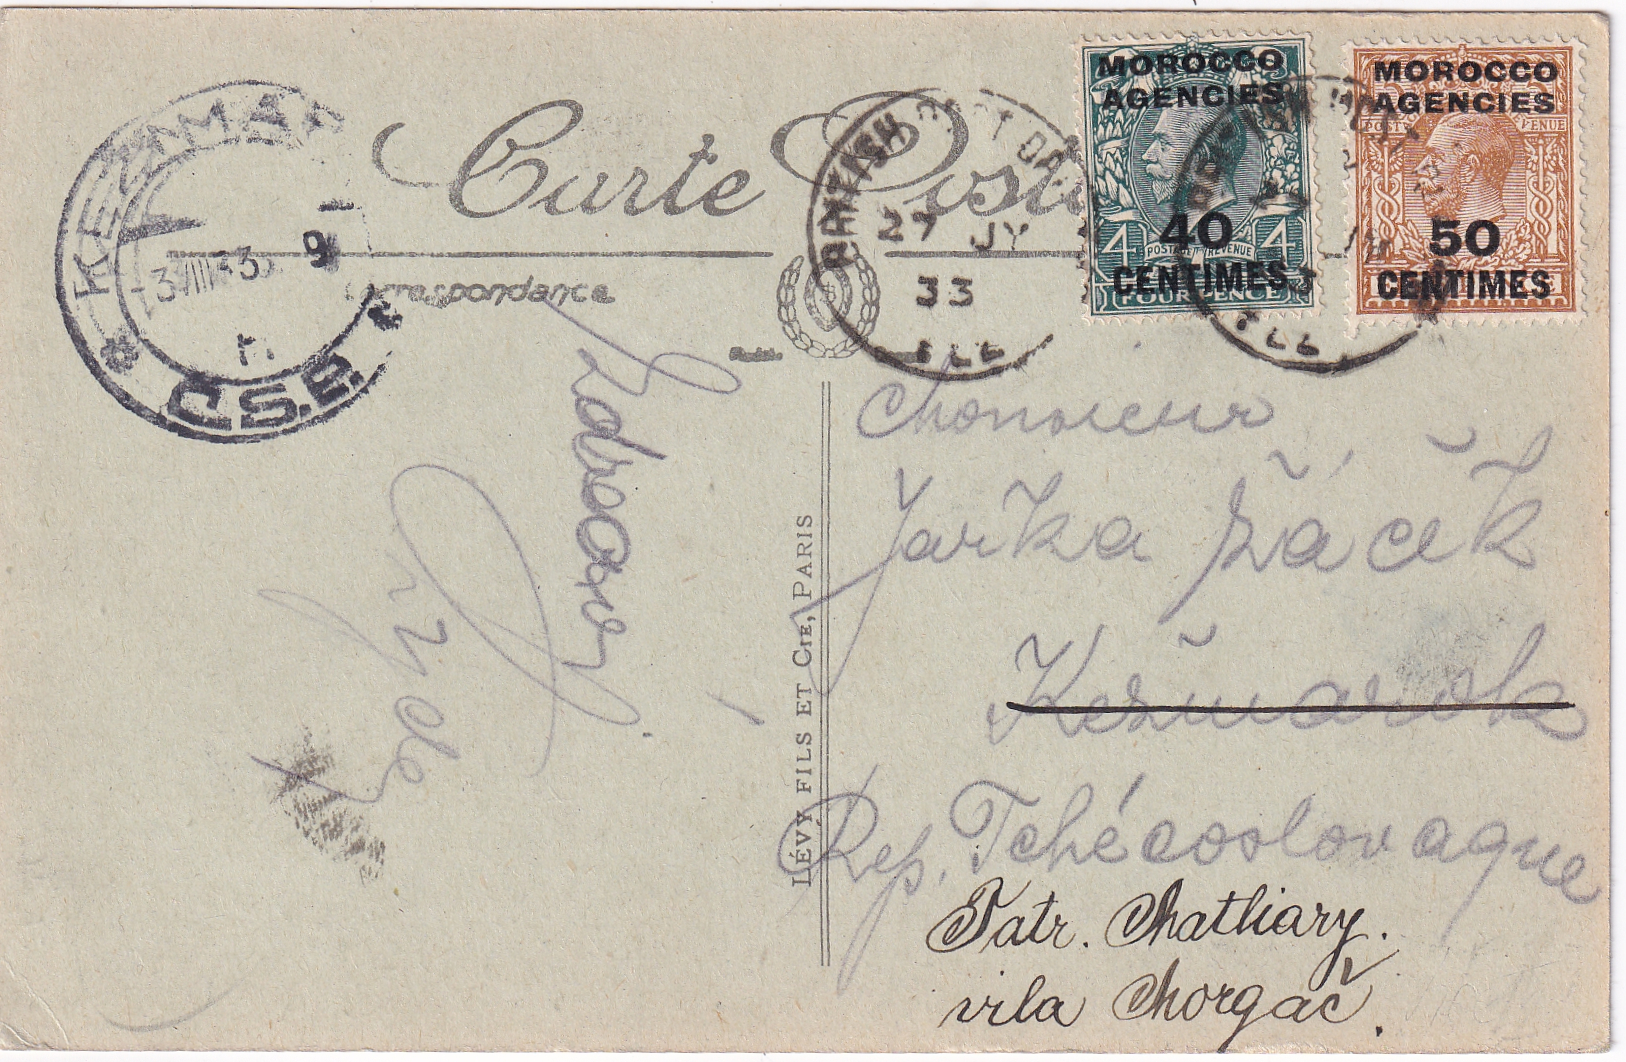 Carte Postale
Correspondance
MOROCCO
AGENCIES
40
CENTIMES
4 POSTAGE REVENUE 4
FOUR PENCE
MOROCCO
AGENCIES
50
CENTIMES
BRITISH POST
27 JY
33
KEŽMAROK
3 VIII 33 9
Č.S.R.
LÉVY FILS ET CIE, PARIS
Zdraví
Monsieur
Jarka Žáček
Kežmarok
Rep. Tchécoslovaque
Tatr. Matliary.
vila Morgač.